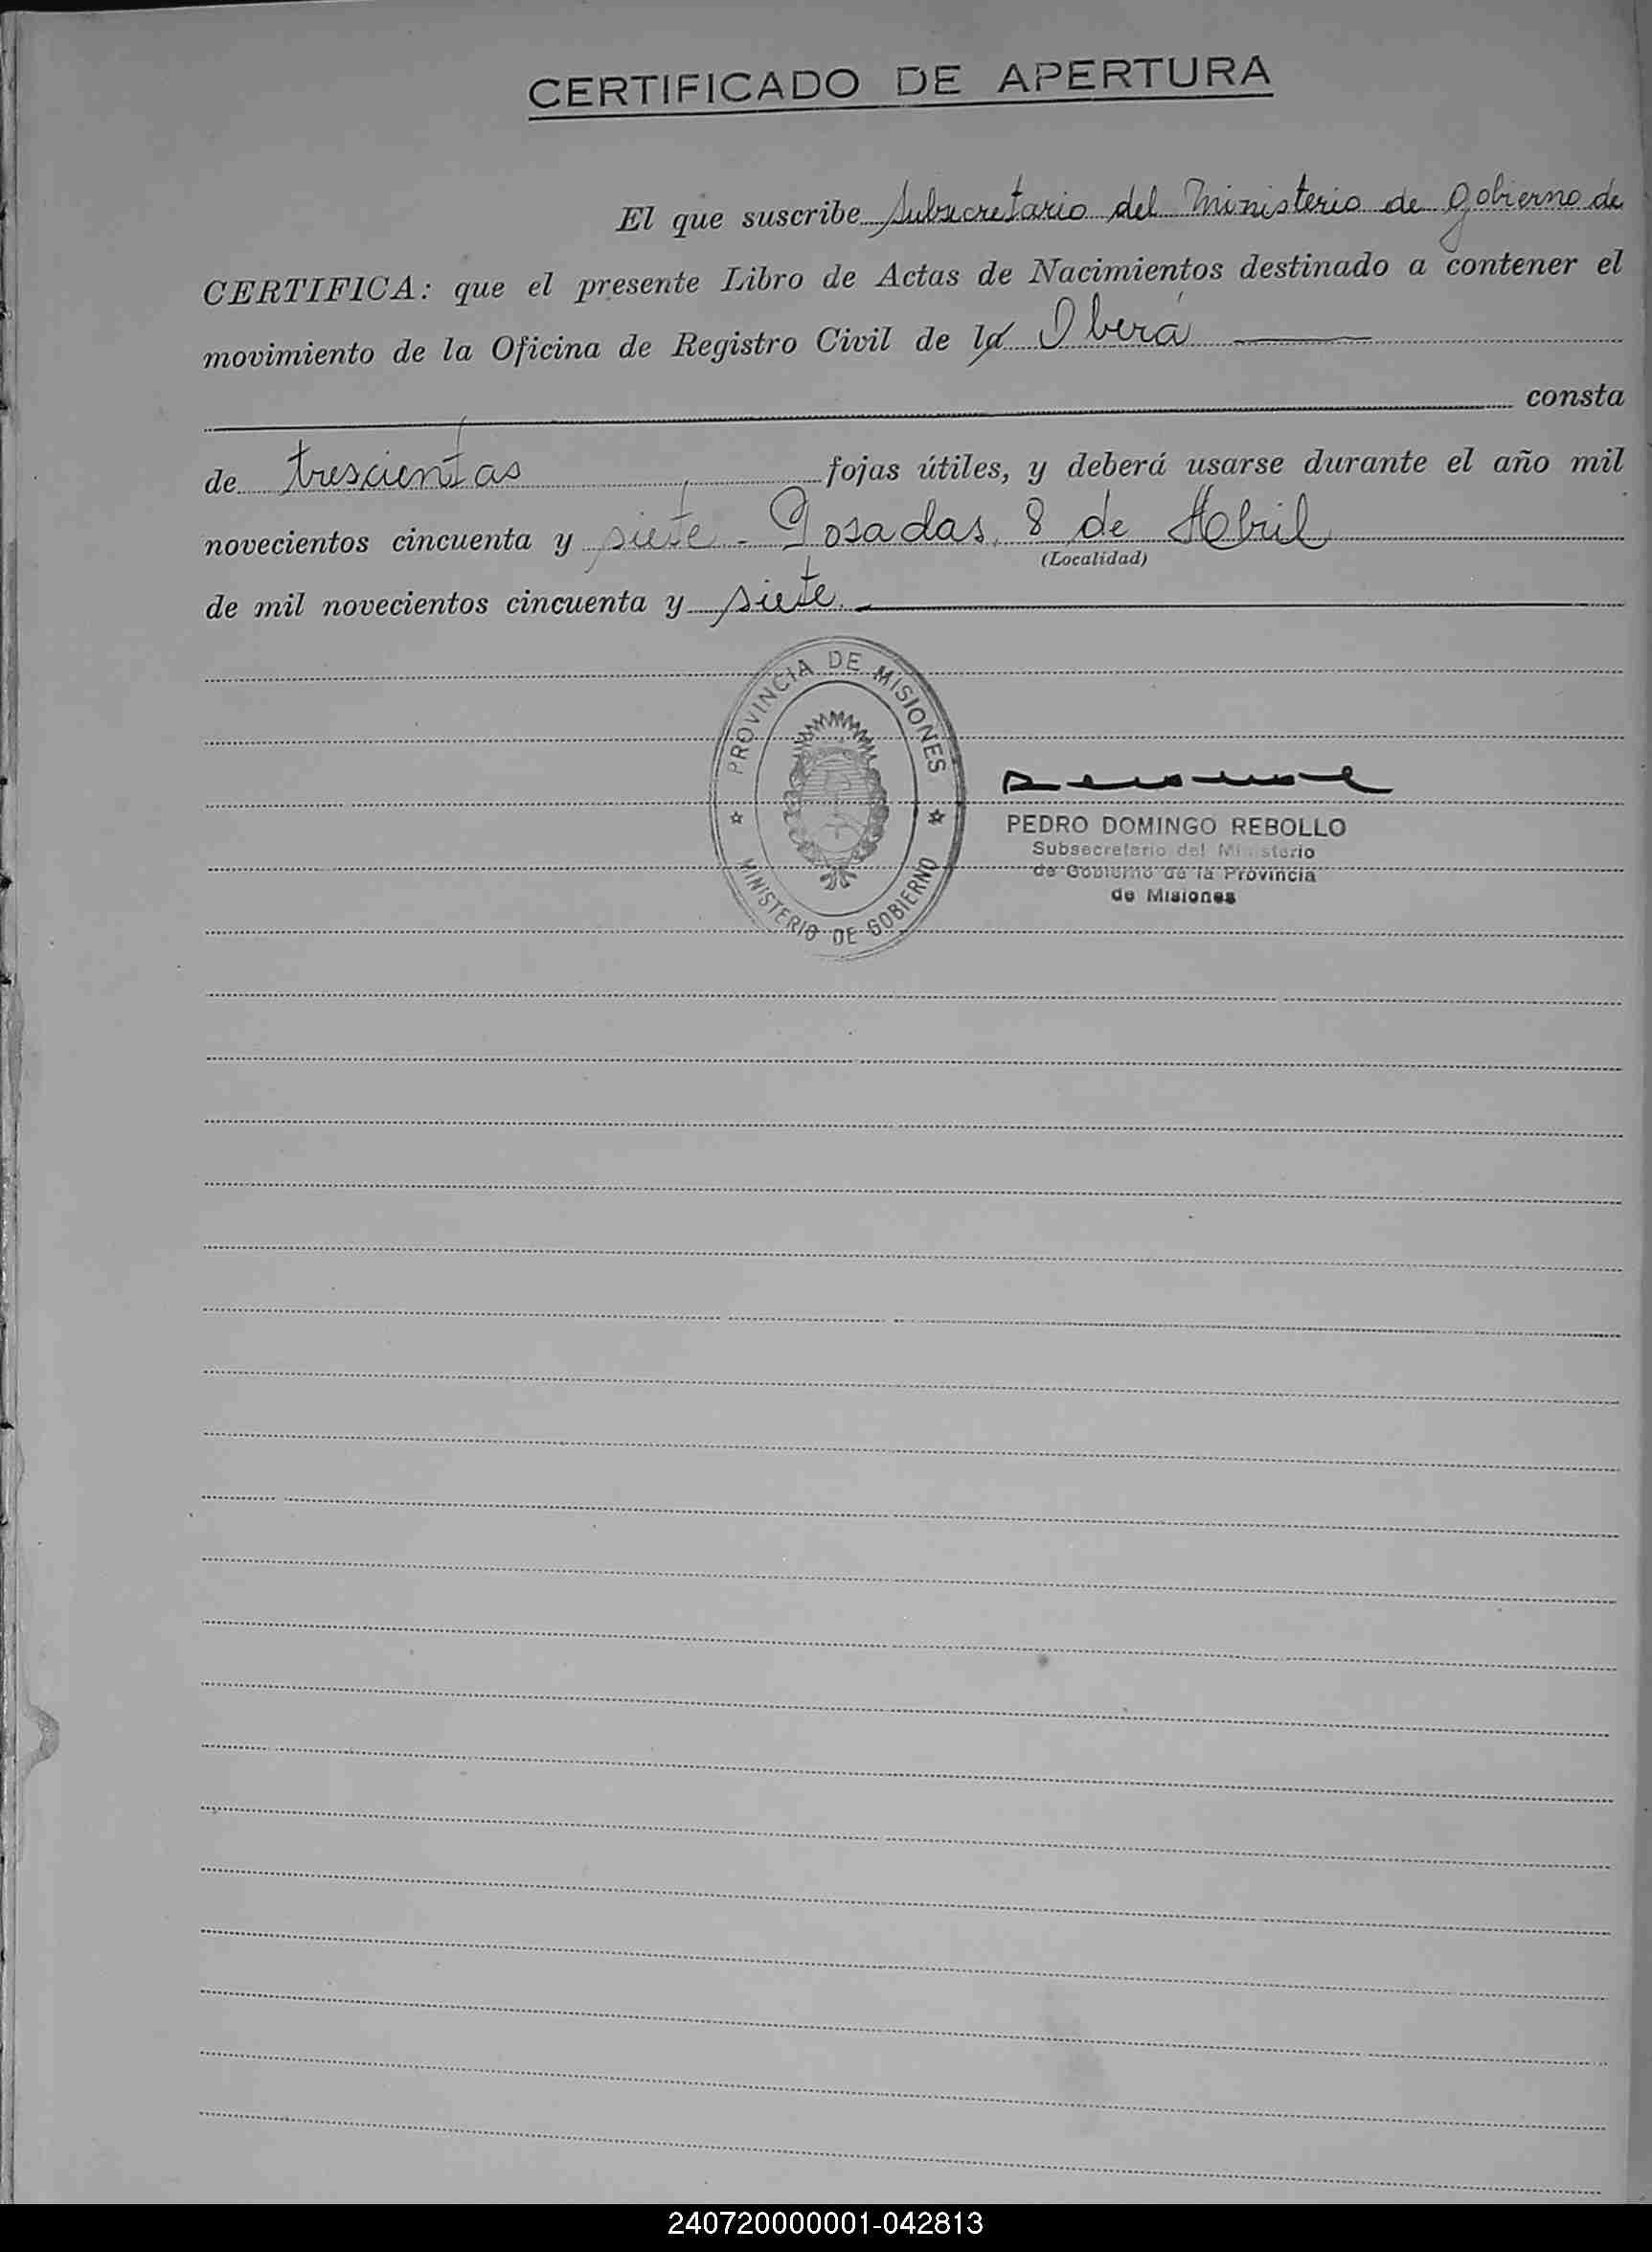 CERTIFICADO DE APERTURA
El que suscribe Subsecretario del Ministerio de Gobierno de
CERTIFICA: que el presente Libro de Actas de Nacimientos destinado a contener el
movimiento de la Oficina de Registro Civil de la Oberá
consta
de trescientas fojas útiles, y deberá usarse durante el año mil
novecientos cincuenta y siete - Posadas, 8 de Abril
(Localidad)
de mil novecientos cincuenta y siete.
PROVINCIA DE MISIONES
MINISTERIO DE GOBIERNO
PEDRO DOMINGO REBOLLO
Subsecretario del Ministerio
de Gobierno de la Provincia
de Misiones
240720000001-042813